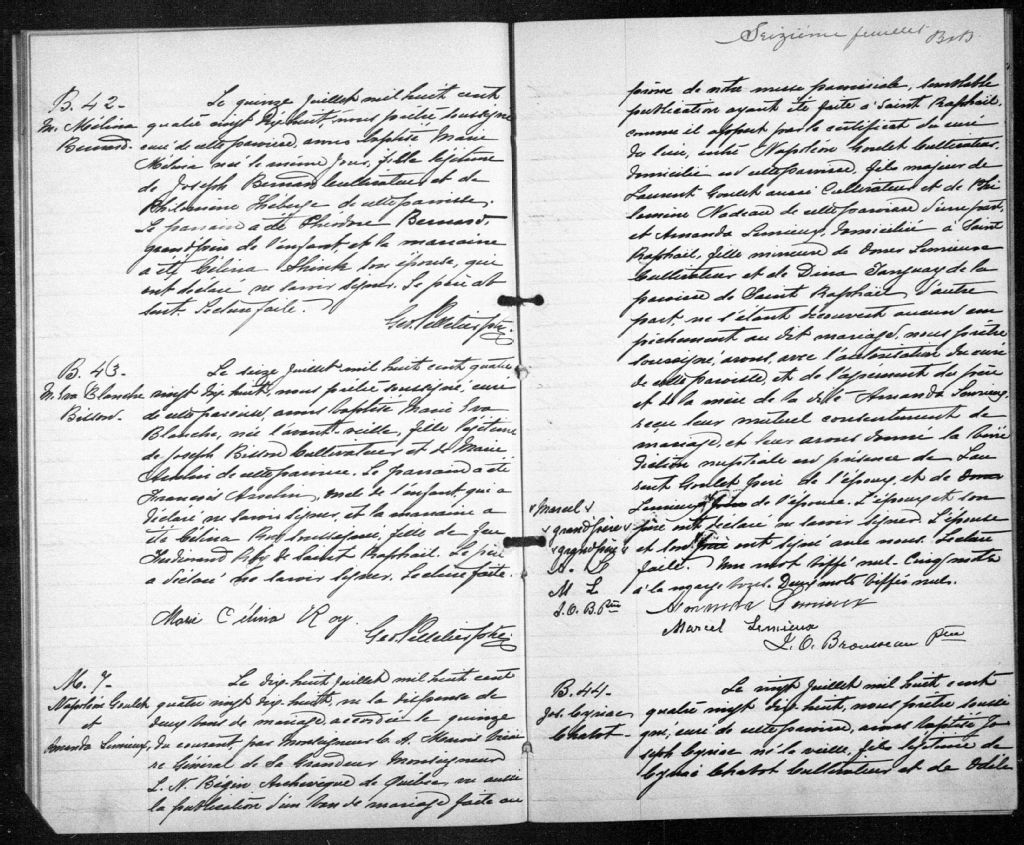 B. 42-
M. Mélina
Bernard.
Le quinze Juillet mil huit cent
quatre vingt dix huit, nous prêtre soussigné
curé de cette paroisse, avons baptisé Marie
Mélina née le même jour, fille légitime
de Joseph Bernard Cultivateur et de
Philomène Héberge de cette paroisse.
Le parrain a été Théodore Bernard,
grand père de l'enfant et la marraine
a été Célina son épouse, qui
ont déclaré ne savoir signer. Le père ab
sent. Lecture faite.
Geo. Pelletier Ptre.
B. 43-
M. Eva Blanche
Bisson.
Le seize Juillet mil huit cent quatre
vingt dix huit, nous prêtre soussigné, curé
de cette paroisse, avons baptisé Marie Eva
Blanche, née l'avant-veille, fille légitime
de Joseph Bisson Cultivateur et de Marie
de cette paroisse. Le parrain a été
François oncle de l'enfant, qui a
déclaré ne savoir signer, et la marraine a
été Célina Roy soussignée, fille de
Ferdinand Roy de Saint Raphaël. Le père
a déclaré ne savoir signer. Lecture faite.
Marie Célina Roy.
Geo. Pelletier Ptre
M. 7-
Napoléon Goulet
et
Amanda Lemieux,
Le dix-huit Juillet mil huit cent
quatre vingt dix-huit, vu la dispense de
deux bans de mariage, accordée le quinze
du courant, par Monseigneur C. A. Marois Vicai
re Général de Sa Grandeur Monseigneur
L. N. Bégin Archevêque de Québec, vu aussi
la publication d'un ban de mariage faite au
Seizième feuillet
prône de notre messe paroissiale, semblable
publication ayant été faite à Saint Raphaël,
comme il appert par le certificat du curé
du lieu, entre Napoléon Goulet Cultivateur,
domicilié en cette paroisse, fils majeur de
Laurent Goulet aussi Cultivateur et de Phi
lomène Nadeau de cette paroisse d'une part,
et Amanda Lemieux, domiciliée à Saint
Raphaël, fille mineure de Omer Lemieux
Cultivateur et de Dina Tanguay de la
paroisse de Saint Raphaël d'autre
part, ne s'étant découvert aucun em
pêchement au dit mariage, nous prêtre
soussigné, avons, avec l'autorisation du curé
de cette paroisse, et de l'agrément du père
et de la mère de la dite Amanda Lemieux,
reçu leur mutuel consentement de
mariage, et leur avons donné la béné
diction nuptiale en présence de Lau
rent Goulet père de l'époux, et de Omer
Lemieux père de l'épouse. L'époux et son
père ont déclaré ne savoir signer. L'épouse
et son père ont signé avec nous. Lecture
faite. Un mot biffé nul. Cinq mots
à la marge bons. Deux mots biffés nuls.
Marcel
grand père
grand père
A. L
M L
J. O. B. Ptre
Amanda Lemieux
Marcel Lemieux
J. O. Brousseau Ptre
B. 44-
Jos. Cyriac
Chabot-
Le vingt Juillet mil huit cent
quatre vingt dix huit, nous prêtre soussi
gné, curé de cette paroisse, avons baptisé Jo
seph Cyriac né la veille, fils légitime de
Cyriac Chabot Cultivateur et de Odile